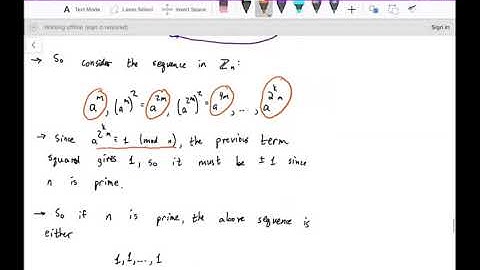 Text Mode
Lasso Select
Insert Space
Working offline (sign in required)
Sign in
→ So consider the sequence in ℤn:
a^m, (a^m)^2 = a^{2m}, (a^{2m})^2 = a^{4m}, ..., a^{2^k m}
→ Since a^{2^k m} ≡ 1 (mod n), the previous term
squared gives 1, so it must be ±1 since
n is prime.
→ So if n is prime, the above sequence is
either
1, 1, ..., 1